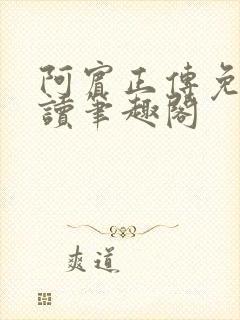 阿賓正傳免
讀筆趣閣
爽道